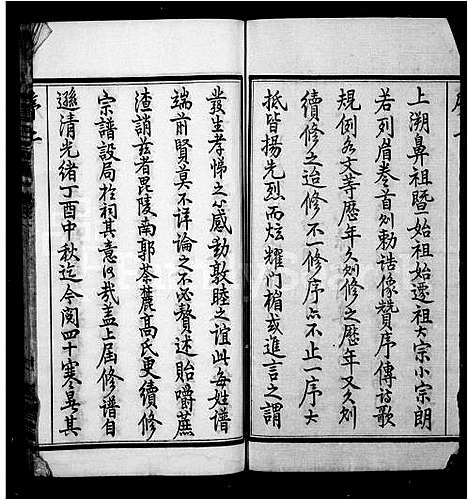 上溯鼻祖暨一始祖始遷祖大宗小宗朗
若列眉卷首列勅誥像贊序傳詩歌
規例各文等歷年久刻修之歷年又久刻
續修之迨修不一修序亦不止一序大
抵皆揚先烈而炫耀門楣或進言之謂
發生孝悌之感動敦睦之誼此每姓譜
端前賢莫不详論之不必贅述貽嚼蔗
渣誚茲者毘陵南郭茶麓高氏更續修
宗譜設局於祠其意何哉盖上屆修譜自
遜清光緒丁酉中秋迄今閱四十寒暑其